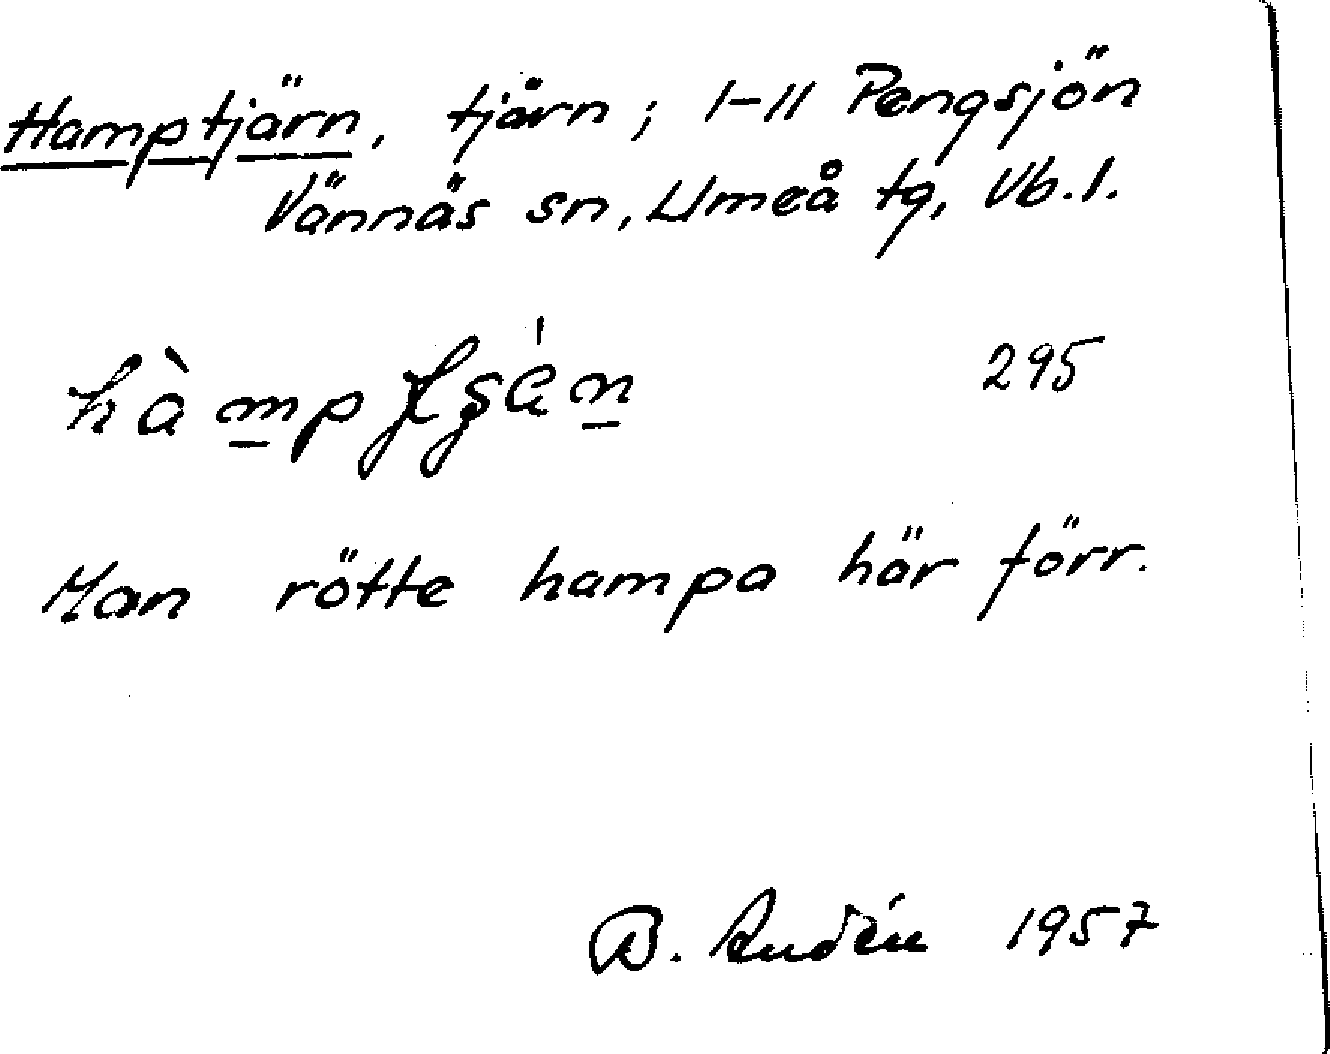 Hamptjärn, tjärn; I-II Pengsjön
Vännäs sn, Umeå tg, Vb. l.
295
Man rötte hampa här förr.
B. Rudén 1957